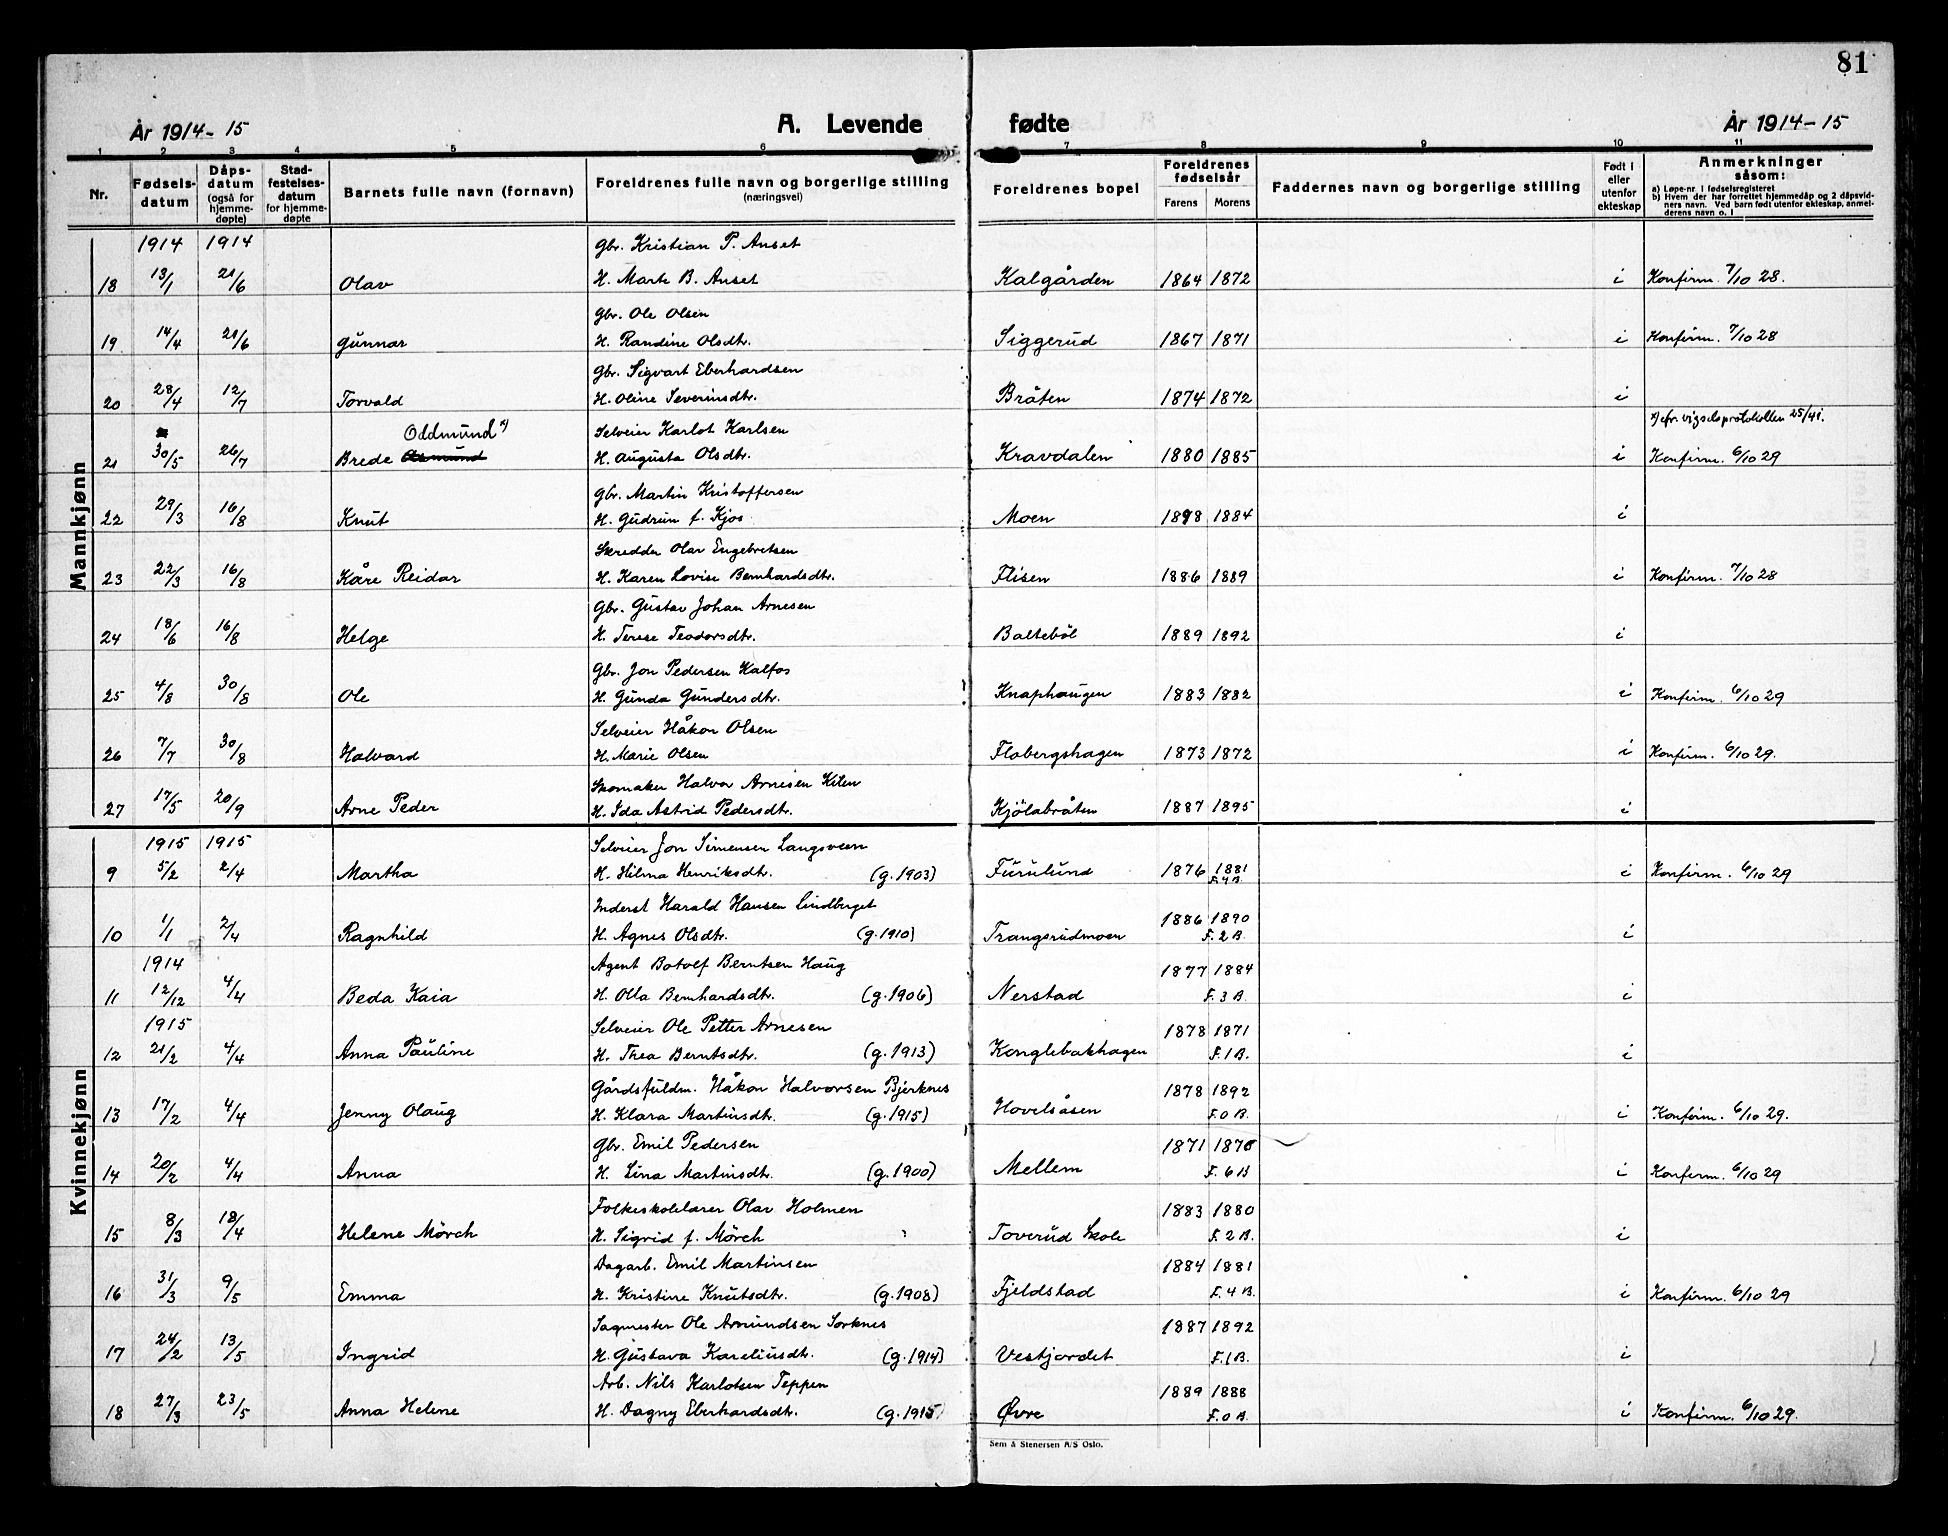 81
År 1914-15 A. Levende fødte År 1914-15
1 2 3 4 5 6 7 8 9 10 11
Nr. Fødselsdatum Dåpsdatum (også for hjemmedøpte) Stadfestelsesdatum for hjemmedøpte Barnets fulle navn (fornavn) Foreldrenes fulle navn og borgerlige stilling (næringsvei) Foreldrenes bopel Foreldrenes fødselsår Farens Morens Faddernes navn og borgerlige stilling Født i eller utenfor ekteskap Anmerkninger såsom:
a) Løpe-nr. i fødselsregisteret
b) Hvem der har forrettet hjemmedåp og 2 dåpsvidners navn. Ved barn født utenfor ekteskap, anmelderens navn o. l
Mannkjønn
1914 1914 Gbr. Kristian P. Anset
18 13/1 21/6 Olav H. Marte B. Anset Kalgården 1864 1872 i Konfirm. 7/10 28.
Gbr. Ole Olsen
19 14/4 21/6 Gunnar H. Randine Olsdtr. Siggerud 1867 1871 i Konfirm. 7/10 28
Gbr. Sigvart Eberhardsen
20 28/4 12/7 Torvald H. Oline Severinsdtr. Bråten 1874 1872 i
Oddmund x) Selveier Karlot Karlsen x) cfr. vigselsprotokollen 25/41.
21 30/5 26/7 Brede Asmund H. Augusta Olsdtr. Kravdalen 1880 1885 i Konfirm. 6/10 29
Gbr. Martin Kristoffersen
22 29/3 16/8 Knut H. Gudrun f. Kjos Moen 1898 1884 i
Skredder Olav Engebretsen
23 22/3 16/8 Kåre Reidar H. Karen Lovise Bernhardsdtr. Flisen 1886 1889 i Konfirm. 7/10 28
Gbr. Gustav Johan Arnesen
24 18/6 16/8 Helge H. Terese Teodorsdtr. Balteböl 1889 1892 i
Gbr. Jon Pedersen Kalfos
25 4/8 30/8 Ole H. Gunda Gundersdtr. Knaphaugen 1883 1882 i Konfirm. 6/10 29
Selveier Håkon Olsen
26 7/7 30/8 Halvard H. Marie Olsen Flobergshagen 1873 1872 i Konfirm. 6/10 29.
Skomaker Halvor Arnesen Kilen
27 17/5 20/9 Arne Peder H. Ida Astrid Pedersdtr. Kjölabråten 1887 1895 i
Kvinnekjønn
1915 1915 Selveier Jon Simensen Langsveen
9 5/2 2/4 Martha H. Hilma Henriksdtr. (g. 1903) Furulund 1876 1881 F. 4 B. i Konfirm. 6/10 29
Inderst Harald Hansen Lindberget
10 1/1 2/4 Ragnhild H. Agnes Olsdtr. (g. 1910) Trangsrudmoen 1886 1890 F. 2 B. i
1914 Agent Botolf Berntsen Haug
11 12/12 4/4 Beda Kaia H. Olla Bernhardsdtr. (g. 1906) Nerstad 1877 1884 F. 3 B. i
1915 Selveier Ole Petter Arnesen
12 21/2 4/4 Anna Pauline H. Thea Berntsdtr. (g. 1913) Konglebakhagen 1878 1871 F. 1 B. i
Gårdsfuldm. Håkon Halvorsen Bjerknes
13 17/2 4/4 Jenny Olaug H. Klara Martinsdtr. (g. 1915) Hovelsåsen 1878 1892 F. 0 B. i Konfirm. 6/10 29.
Gbr. Emil Pedersen
14 20/2 4/4 Anna H. Lina Martinsdtr. (g. 1900) Mellem 1871 F. 6 B i Konfirm. 6/10 29
Folkeskolelærer Olav Holmen
15 8/3 18/4 Helene Mörch H. Sigrid f. Mörch Toverud Skole 1883 1880 F. 2 B. i
Dagarb. Emil Martinsen
16 31/3 9/5 Emma H. Kristine Knutsdtr. (g. 1908) Fjeldstad 1884 1881 F. 4 B. i Konfirm. 6/10 29
Sagmester Ole Amundsen Sorknes
17 24/2 13/5 Ingrid H. Gustava Kareliusdtr. (g. 1914) Vestjordet 1887 1892 F. 1 B. i
Arb. Nils Karlotsen Teppen
18 27/3 23/5 Anna Helene H. Dagny Eberhardsdtr. (g. 1915) Øvre 1889 1888 F. 0 B. i Konfirm. 6/10 29.
Sem & Stenersen A/S Oslo.